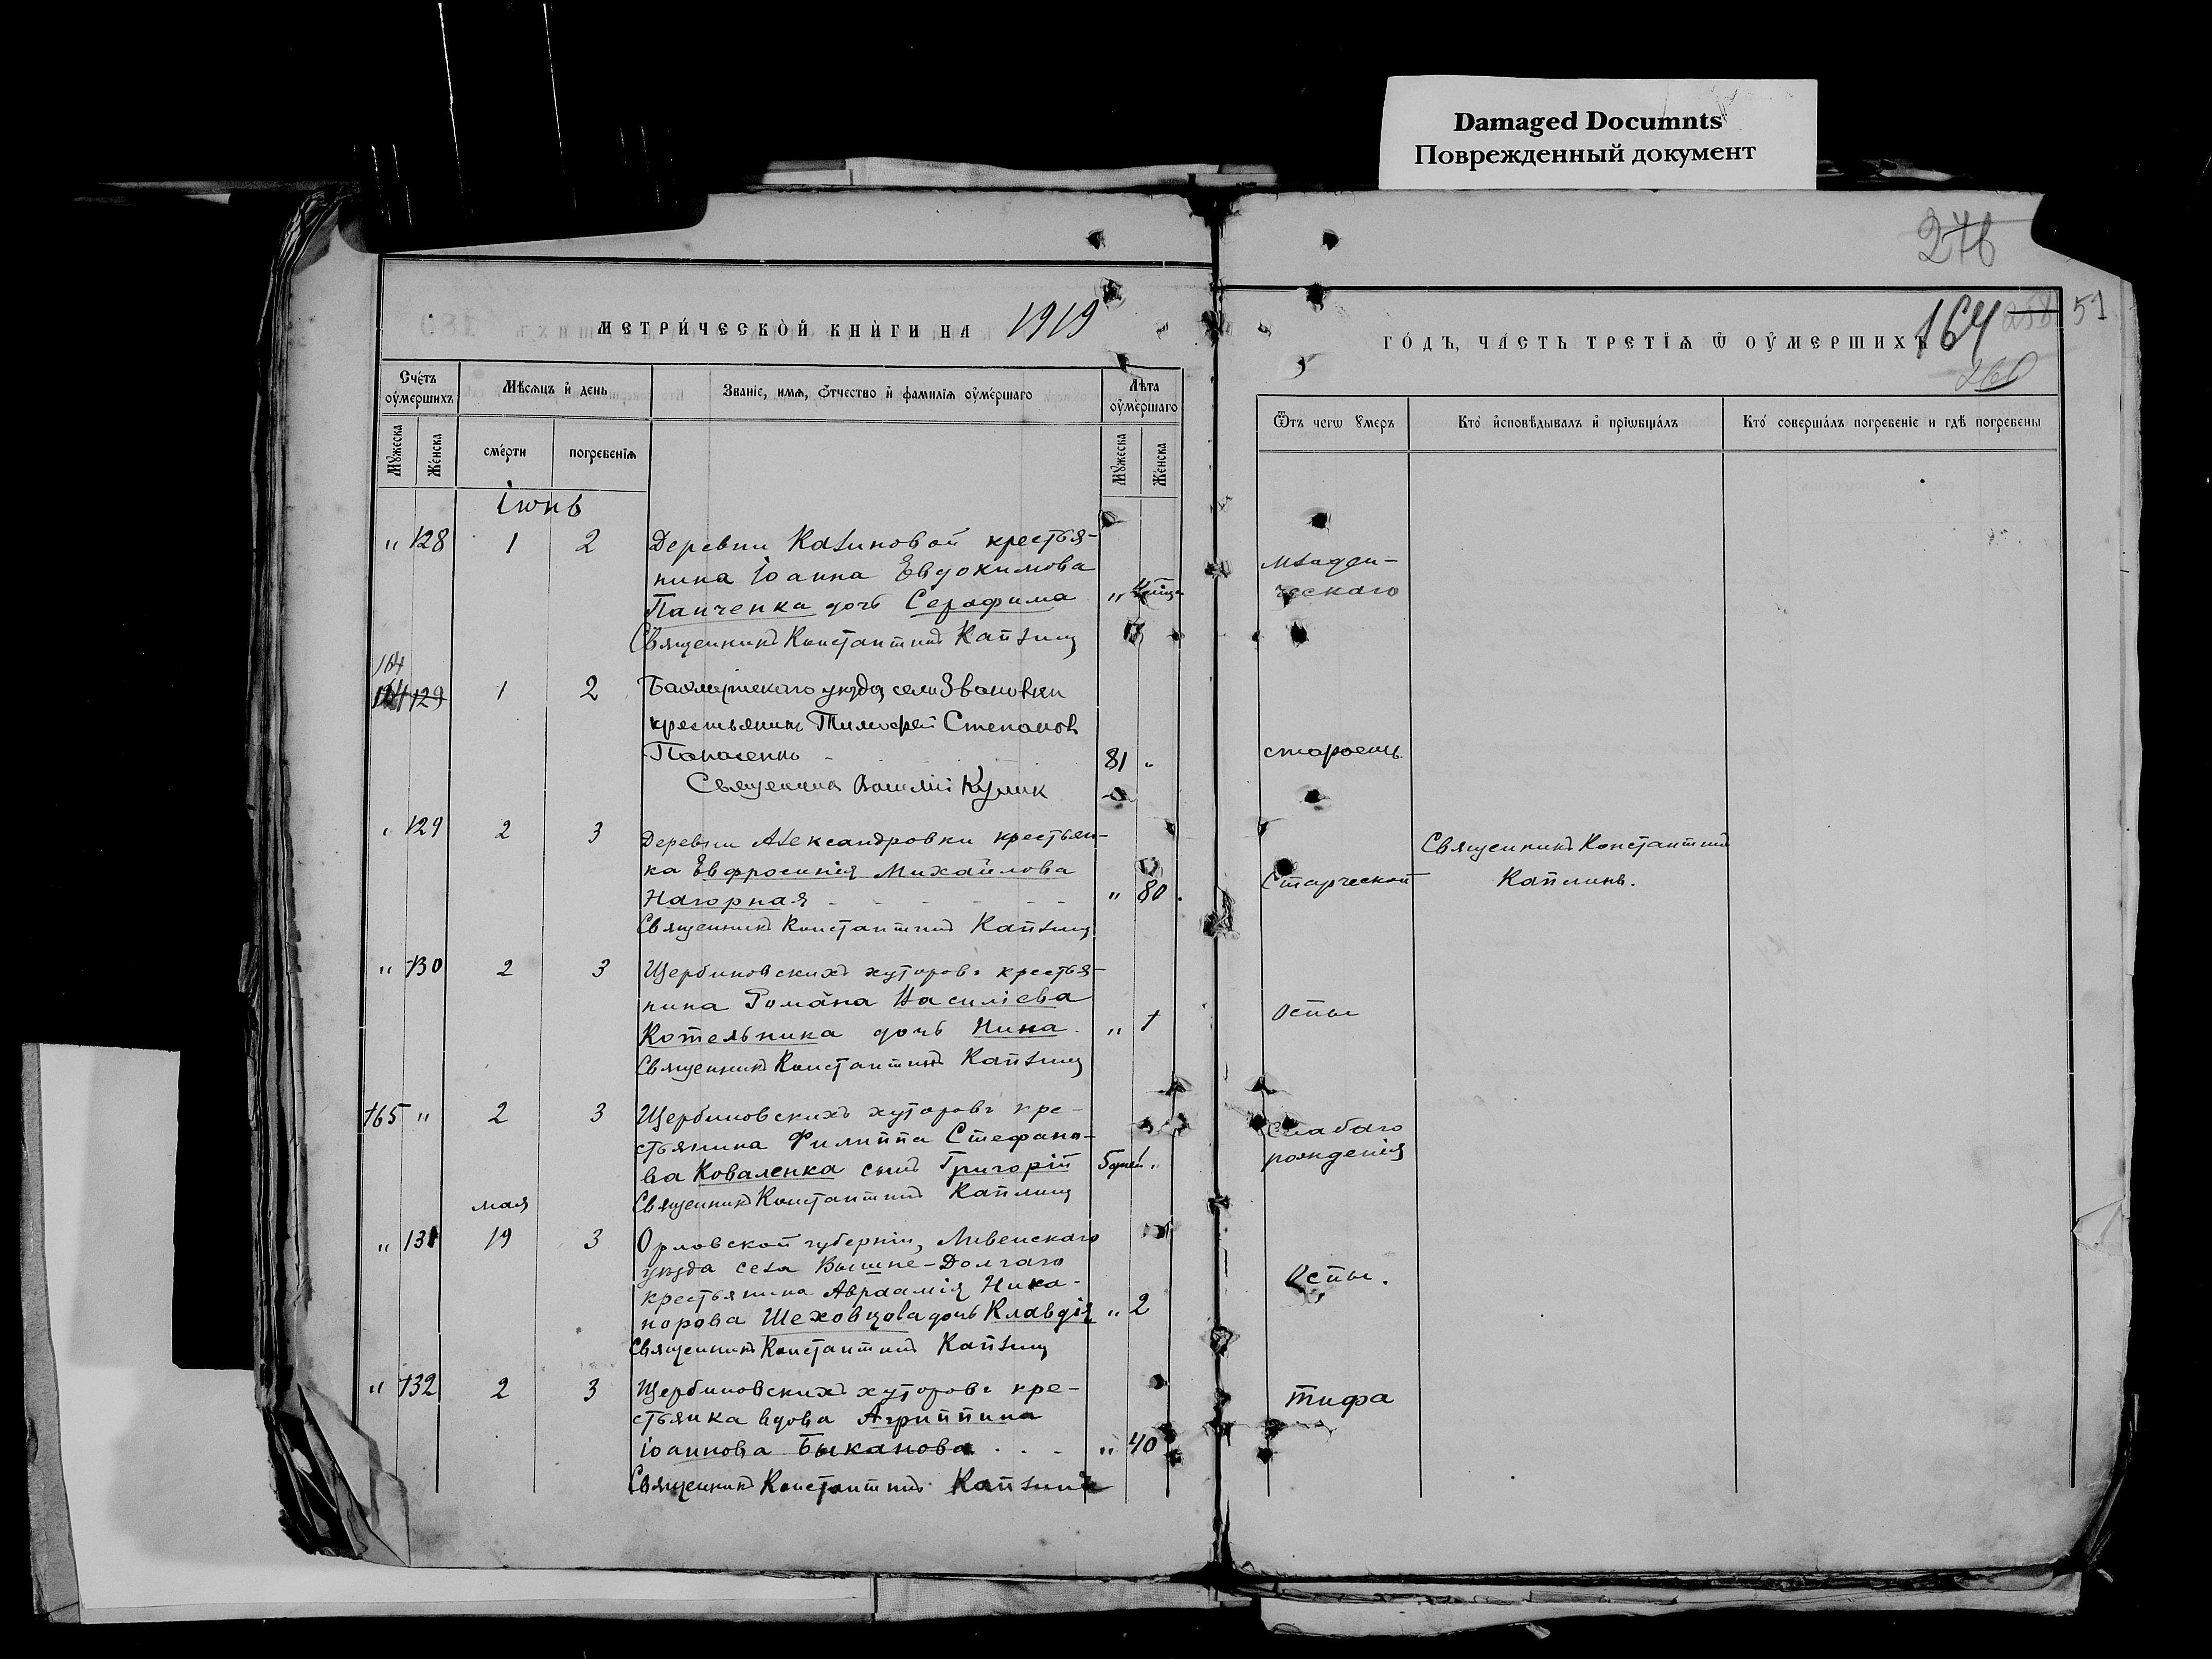 Damaged Documnts
Поврежденный документ
276
МЕТРИ́ЧЕСКО̀Й КНЍГИ НА 1919
ГО́ДЪ, ЧА́СТЬ ТРЕТЇѦ Ѿ ОУ҆МЕРШИХЪ
164
258
51
260
Сче́тъ оу҆ме́ршихъ
Мѣ́сѧцъ и҆ день
Зва́нїе, имѧ, Ѻ҆́тчество и҆ фамилїѧ оу҆ме́ршаго
Лѣ́та оу҆ме́ршаго
Ѿтъ чегѡ̀ ᲂу҆́меръ
Кто̀ и҆сповѣ́дывалъ и҆ прїѡбща́лъ
Кто̀ соверша́лъ погребе́нїе и гдѣ̀ погребены
Мꙋ́жеска
Же́нска
сме́рти
погребе́нїѧ
Мꙋ́жеска
Же́нска
Іюнь
" 128 1 2 Деревни Калиновой крестья-
нина Іоанна Евдокимова
Панченка дочь Серафима "
Священникъ Константинъ Каплинъ
младен-
ческаго
164
129 1 2 Бахмутскаго уѣзда, села Звановки
крестьянинъ Тимофей Степановъ
81 "
Священникъ Василій Кулик
старость
" 129 2 3 Деревни Александровки крестьян-
ка Евфросинія Михайлова
Нагорная " 80
Священникъ Константинъ Каплинъ
Старческой
Священникъ Константинъ
Каплинъ.
" 130 2 3 Щербиновскихъ хуторовъ крестья-
нина Романа Василіева
Котельника дочь Нина " 1
Священникъ Константинъ Каплинъ
Оспы
165 " 2 3 Щербиновскихъ хуторовъ кре-
стьянина Филиппа Стефано-
ва Коваленка сынъ Григорій 5 дней "
Священникъ Константинъ Каплинъ
слабаго
рожденія
мая
" 131 19 3 Орловской губерніи, Ливенскаго
уѣзда села Вышне-Долгаго
крестьянина Авраамія Ника-
норова Шеховцова дочь Клавдія " 2
Священникъ Константинъ Каплинъ
Оспы.
" 132 2 3 Щербиновскихъ хуторовъ кре-
стьянка вдова Агриппина
Іоаннова Быканова . . - " 40
Священникъ Константинъ Каплинъ
тифа